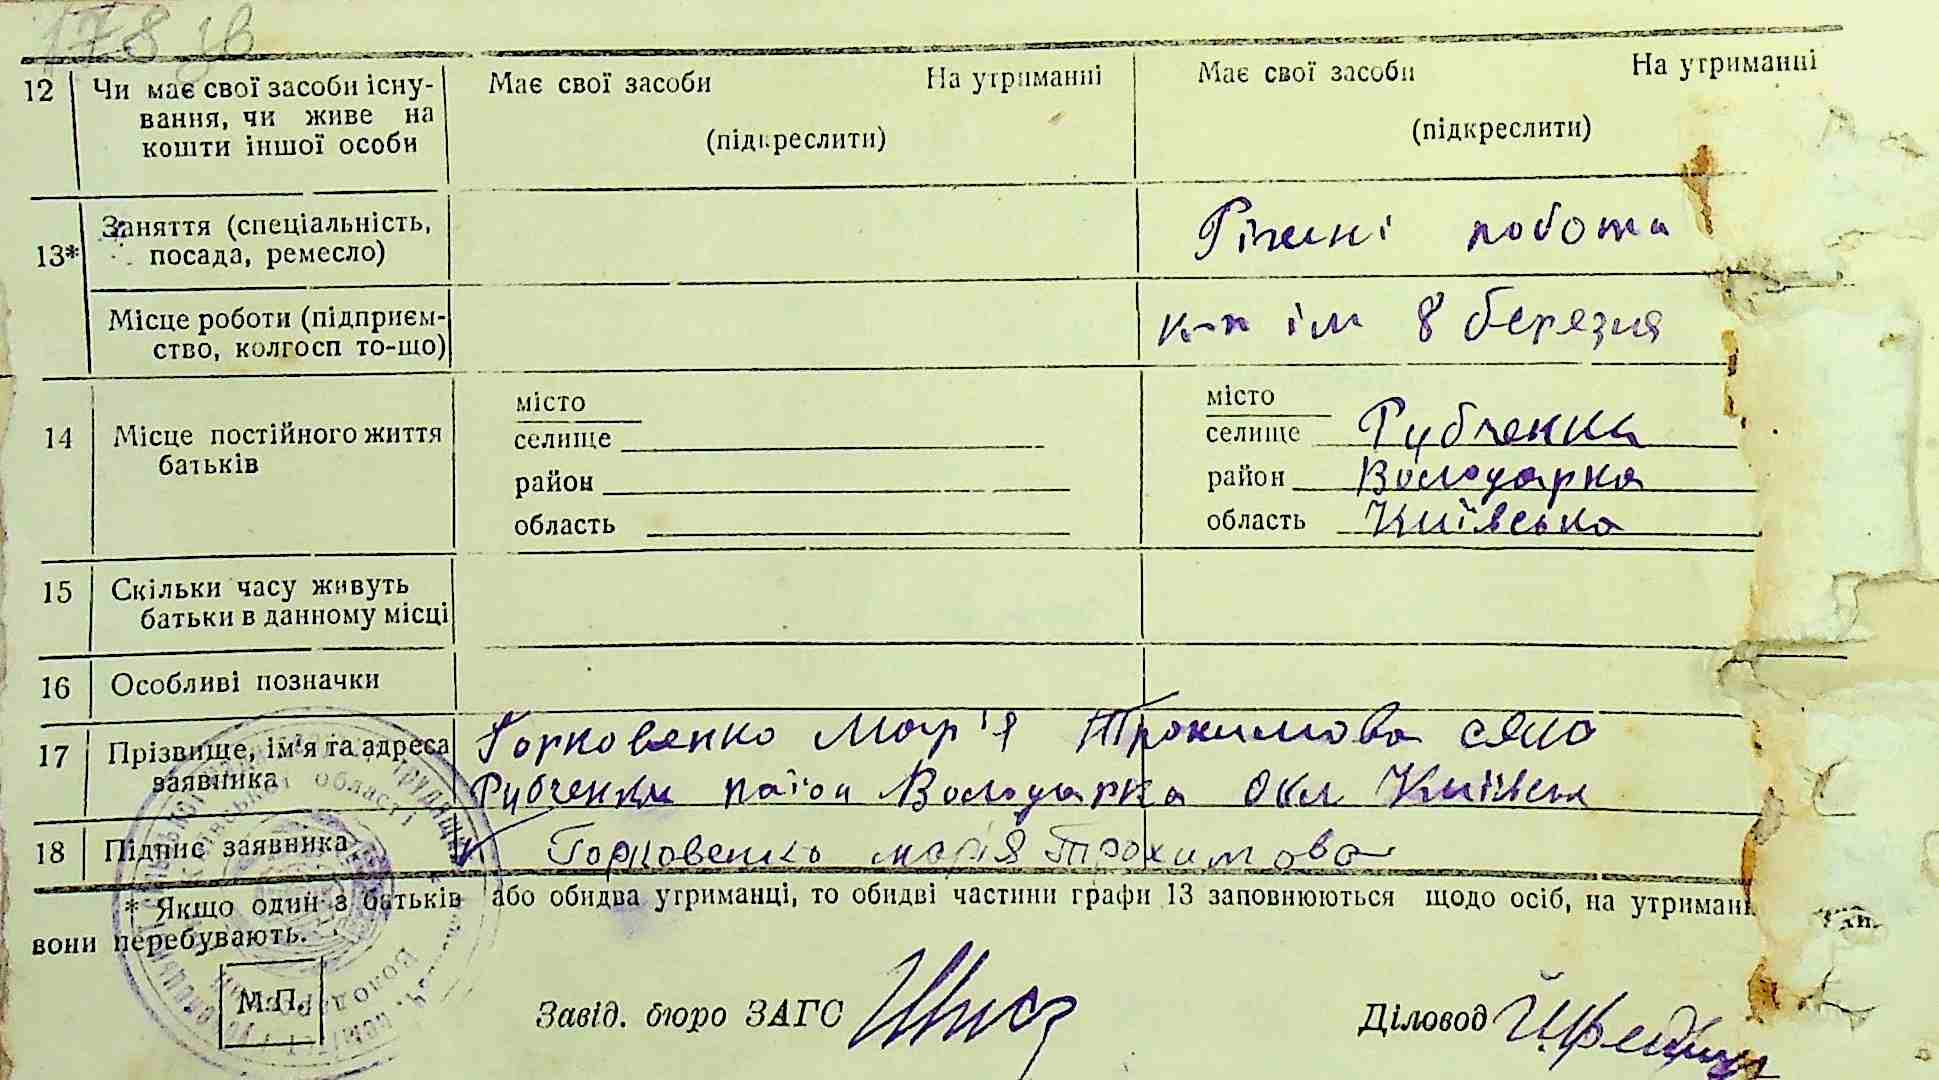 178
12 Чи має свої засоби існу-
вання, чи живе на
кошти іншої особи
Має свої засоби На утриманні
(підкреслити)
Має свої засоби На утриманні
(підкреслити)
13* Заняття (спеціальність,
посада, ремесло)
Ріжні робота
Місце роботи (підприєм-
ство, колгосп то-що)
ім 8 березня
14 Місце постійного життя
батьків
місто
селище
район
область
місто
селище Рубченка
район Володарка
область Київська
15 Скільки часу живуть
батьки в данному місці
16 Особливі позначки
17 Прізвище, ім'я та адреса
заявника
Горковенко Мар'я Трохимова село
Рубченки район Володарка Київськ
18 Підпис заявника
Горковенко марія Трохимова
* Якщо один з батьків або обидва утриманці, то обидві частини графи 13 заповнюються щодо осіб, на утриман
вони перебувають.
М.П.
Завід. бюро ЗАГС
Діловод
області